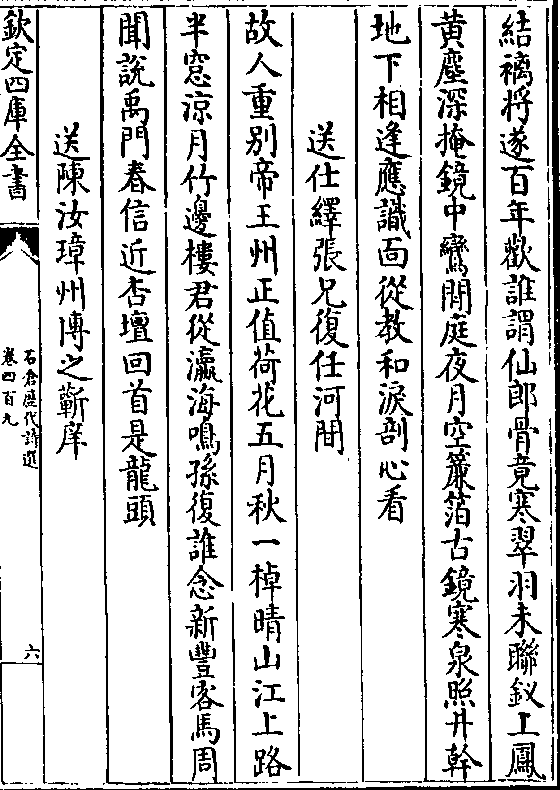 結褵将遂百年歡誰謂仙郎骨竟寒翠羽未聯釵上鳳
黄塵深掩鏡中鸞閒庭夜月空簾箔古鏡寒泉照井幹
地下相逢應識面從教和淚剖心看
送仕繹張兄復任河間
故人重别帝王州正值荷花五月秋一棹晴山江上路
半窓涼月竹邊樓君從瀛海鳴孫復誰念新豐客馬周
聞說禹門春信近杏壇回首是龍頭
送陳汝璋州博之蘄庠
欽定四庫全書
石倉歴代詩選
卷四百九
六